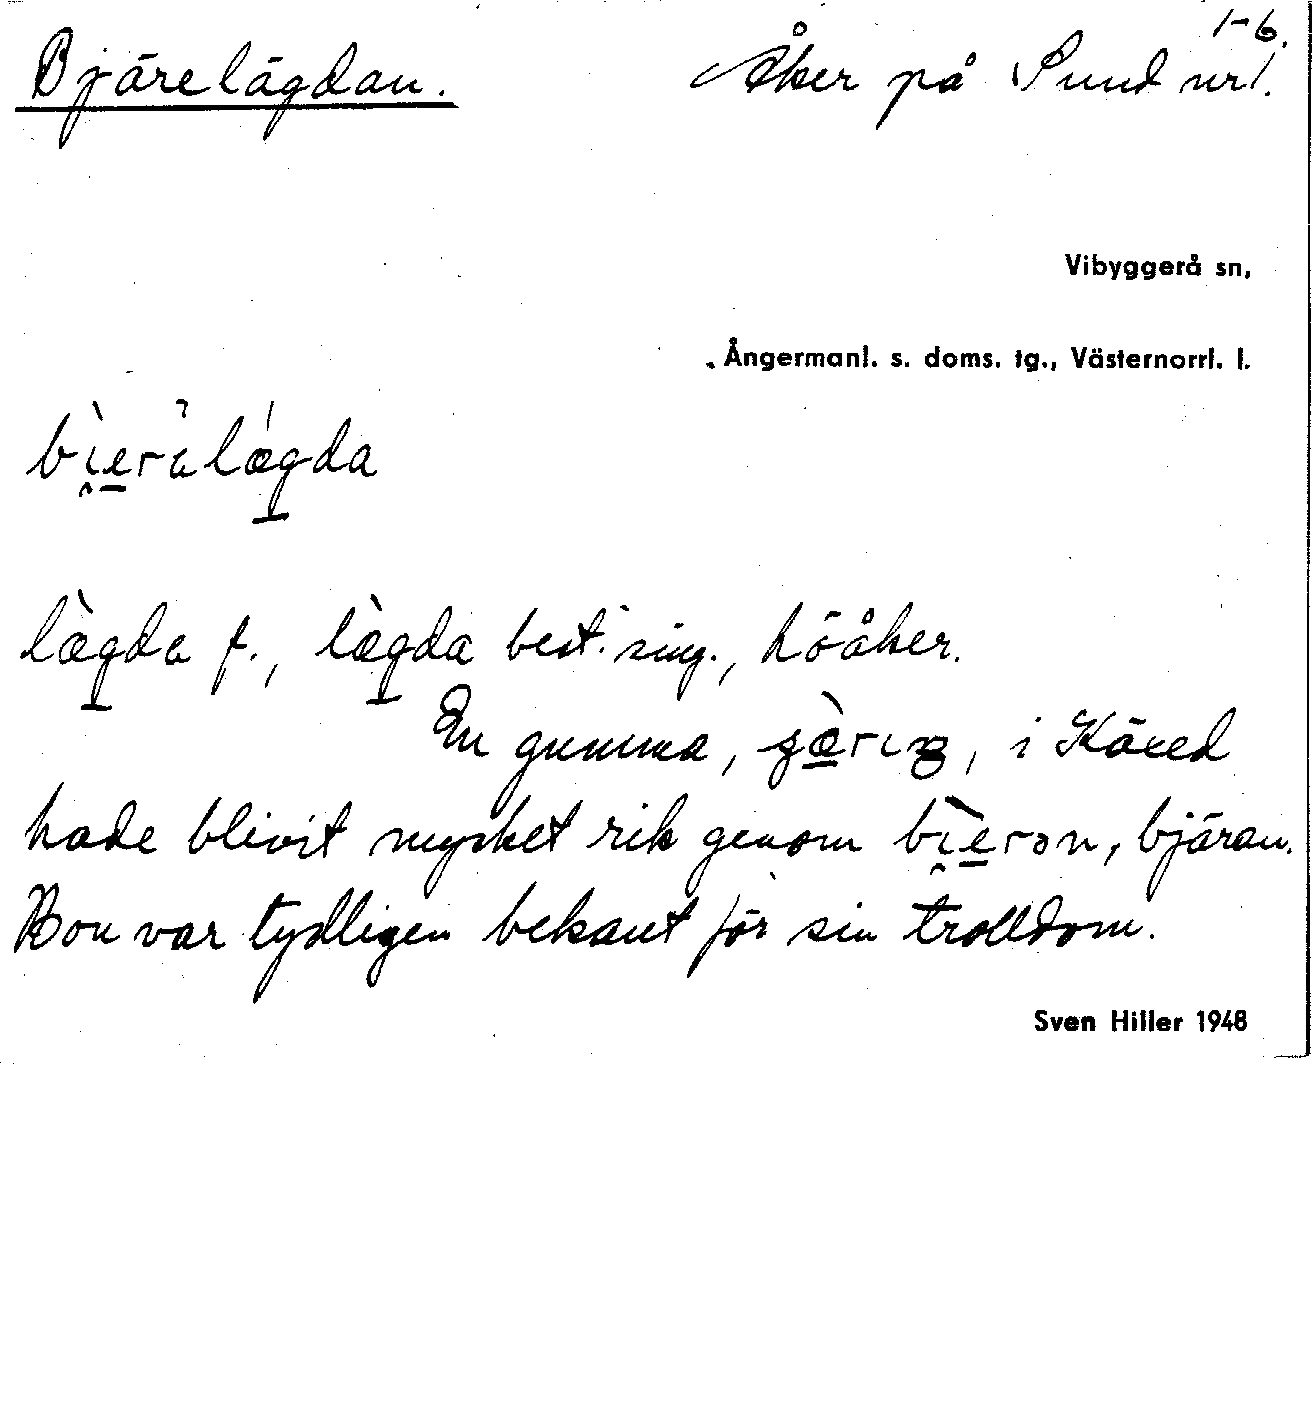 1-6.
Bjärelägdan. Åker på Sund nr 1.
Vibyggerå sn,
Ångermanl. s. doms. tg., Västernorrl. l.
bìeralægda
lægda f., lægda best. sing., höåker.
En gumma, i Käxed
hade blivit mycket rik genom bìeron, bjäran.
Hon var tydligen bekant för sin trolldom.
Sven Hiller 1948